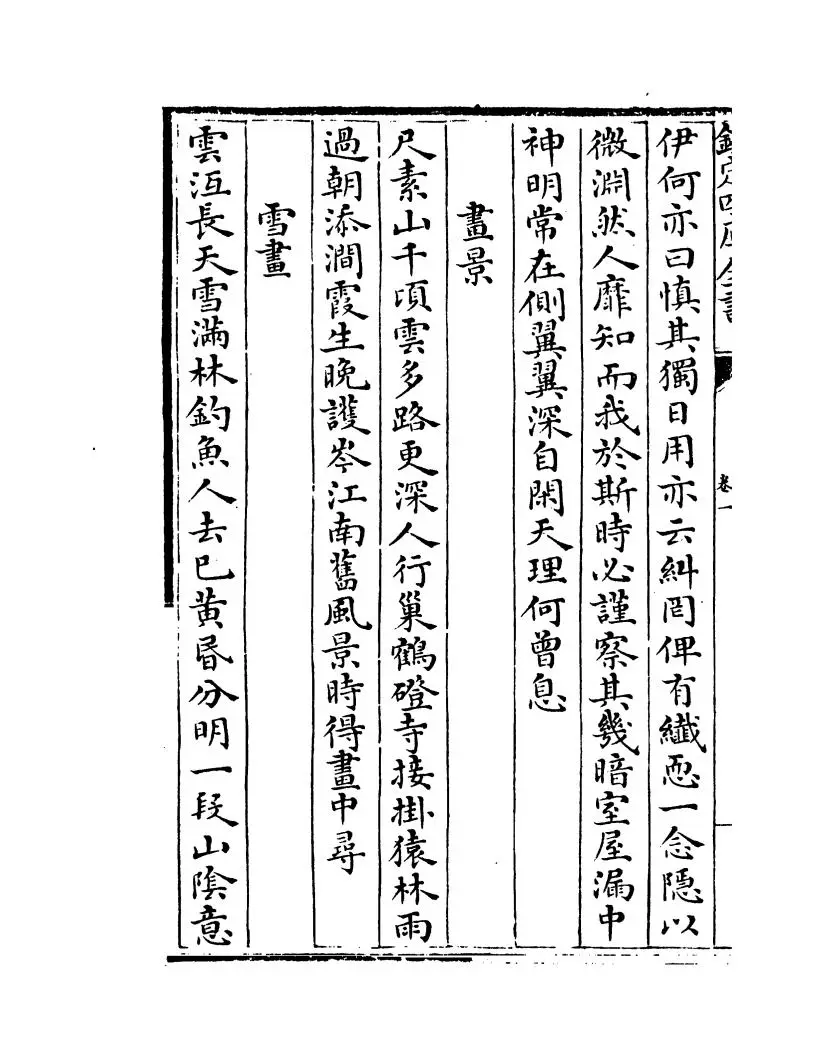 欽定四庫全書
卷一
伊何亦曰慎其獨日用亦云糾罔俾有纖慝一念隱以
微淵然人靡知而我於斯時必謹察其幾暗室屋漏中
神明常在側翼翼深自閑天理何曾息
畫景
尺素山千頃雲多路更深人行巢鶴磴寺接掛猿林雨
過朝添澗霞生晚護岑江南舊風景時得畫中尋
雪畫
雲沍長天雪滿林釣魚人去已黃昏分明一段山陰意